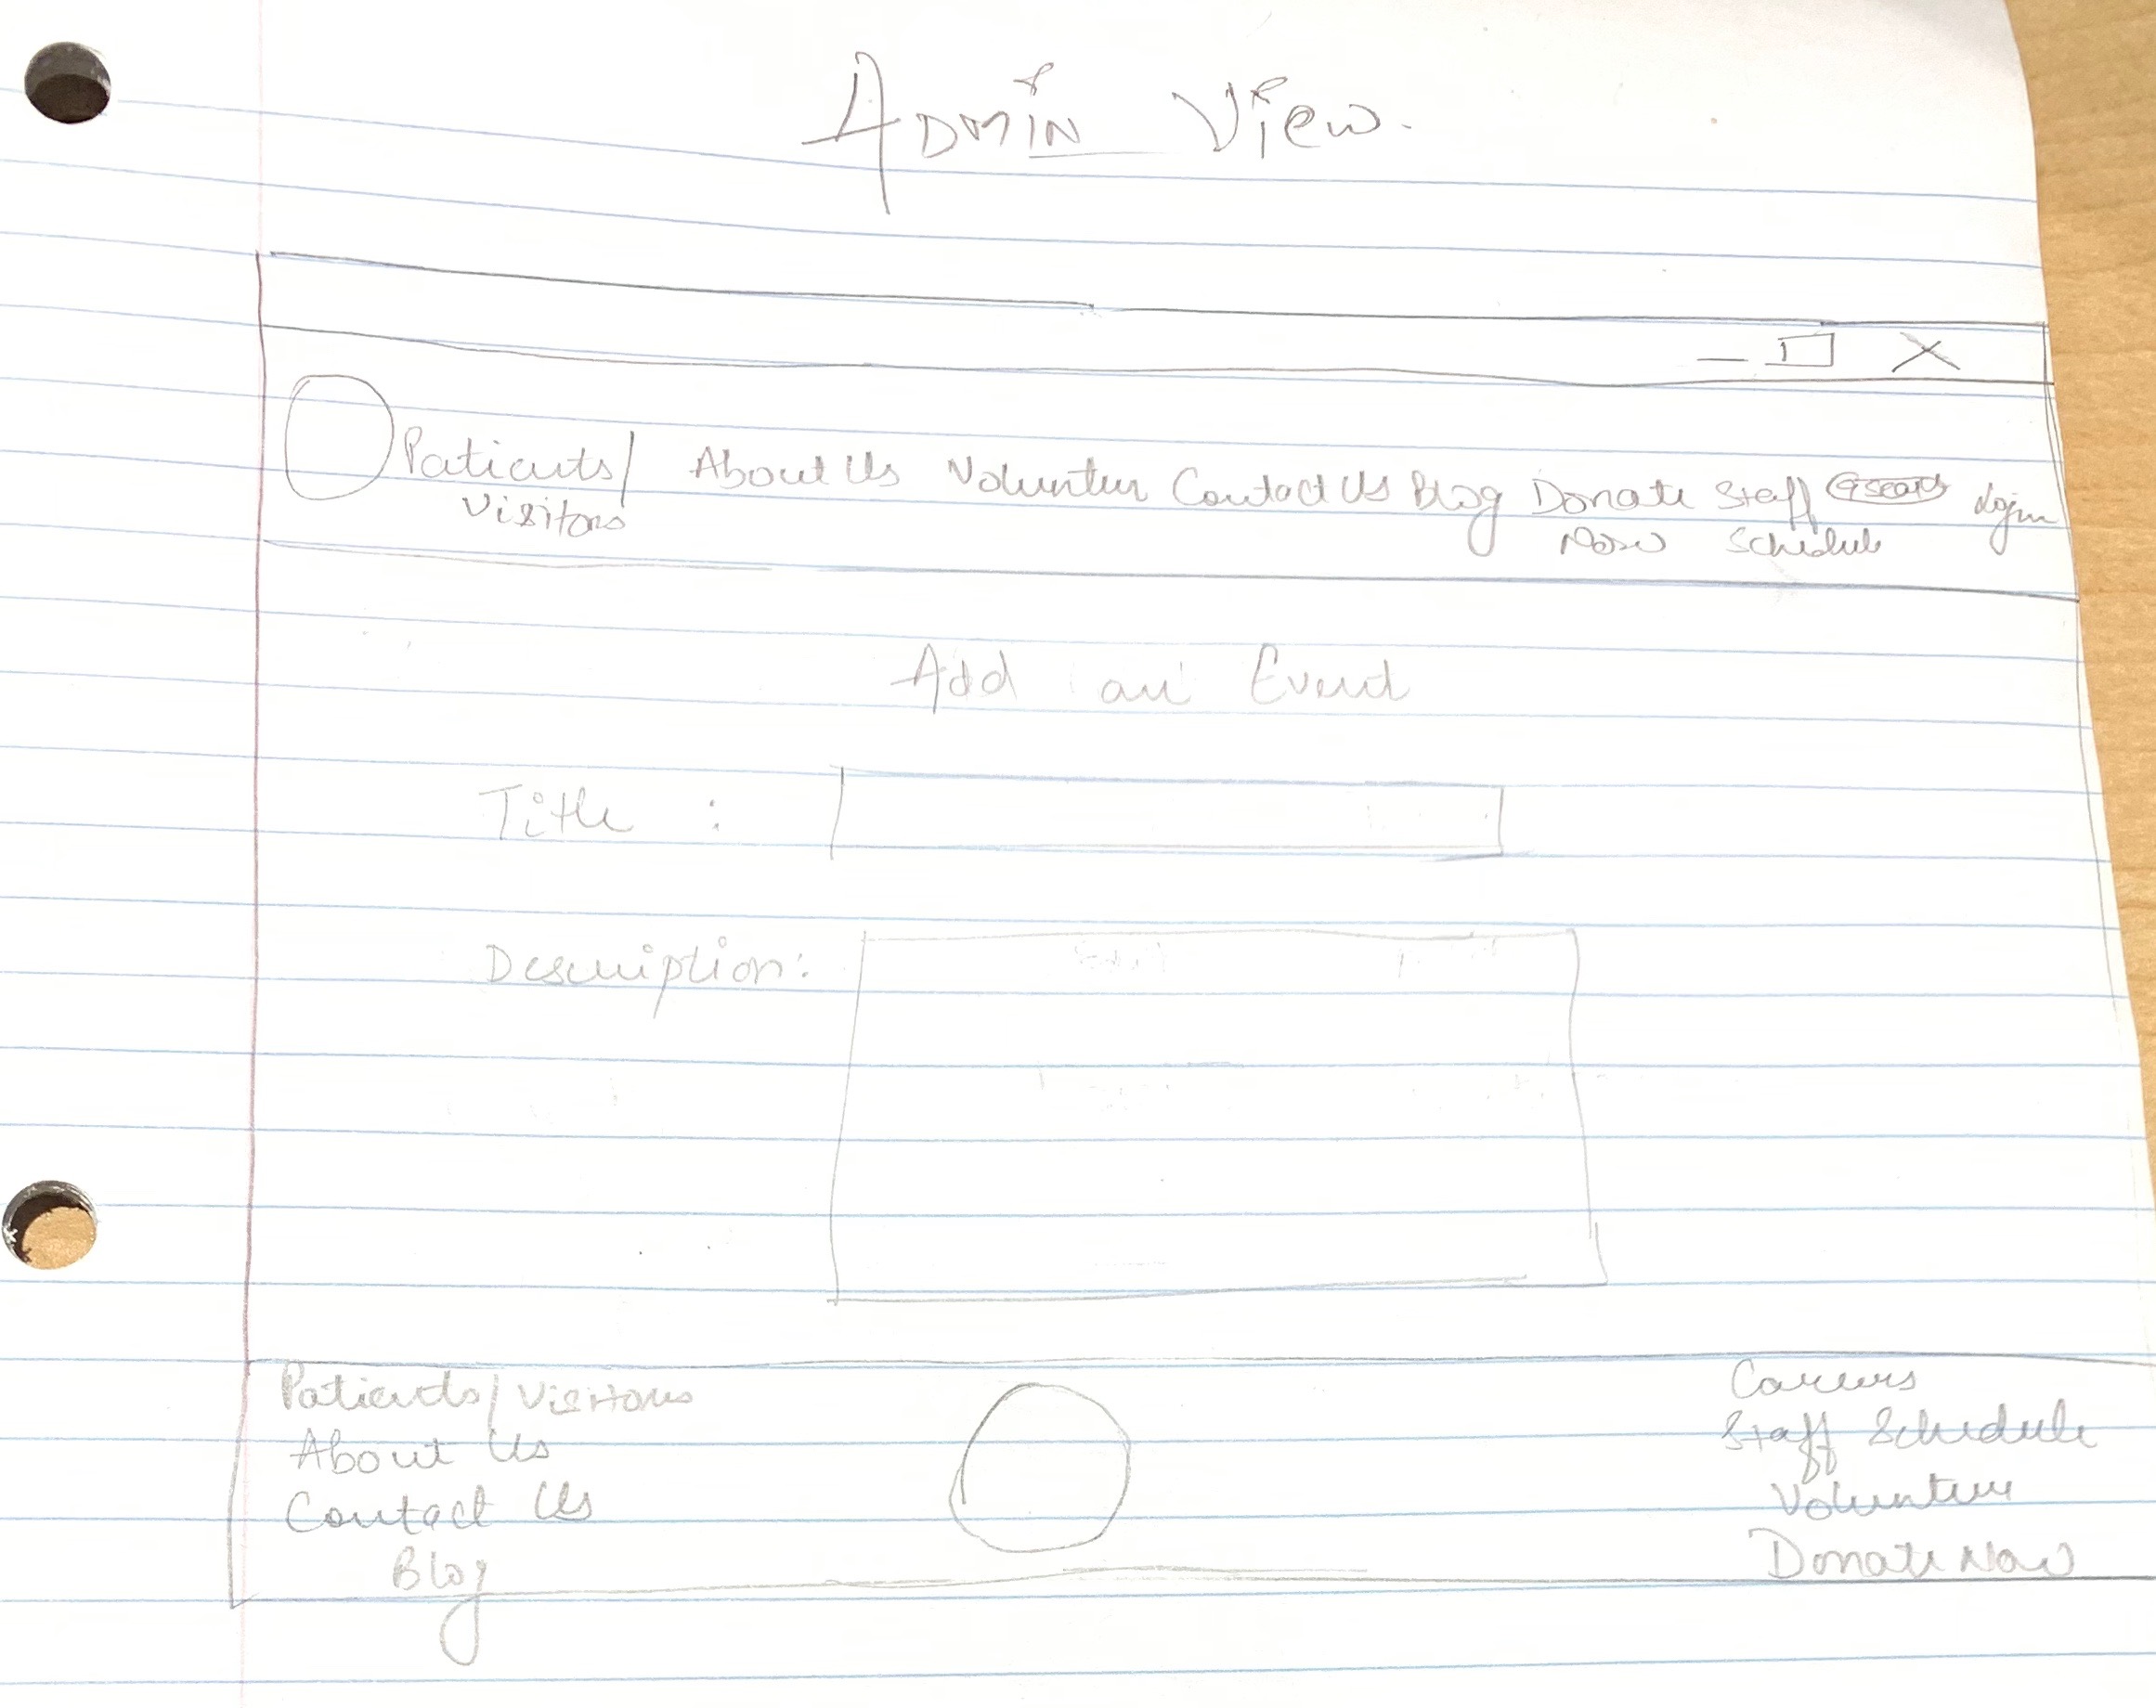 Admin View.
Patients/ About Us Volunteer Contact Us Blog Donate Staff Search Login
Visitors Now Schedule
Add an Event
Title :
Description:
Patients/Visitors
About Us
Contact Us
Blog
Careers
Staff Schedule
Volunteer
Donate Now